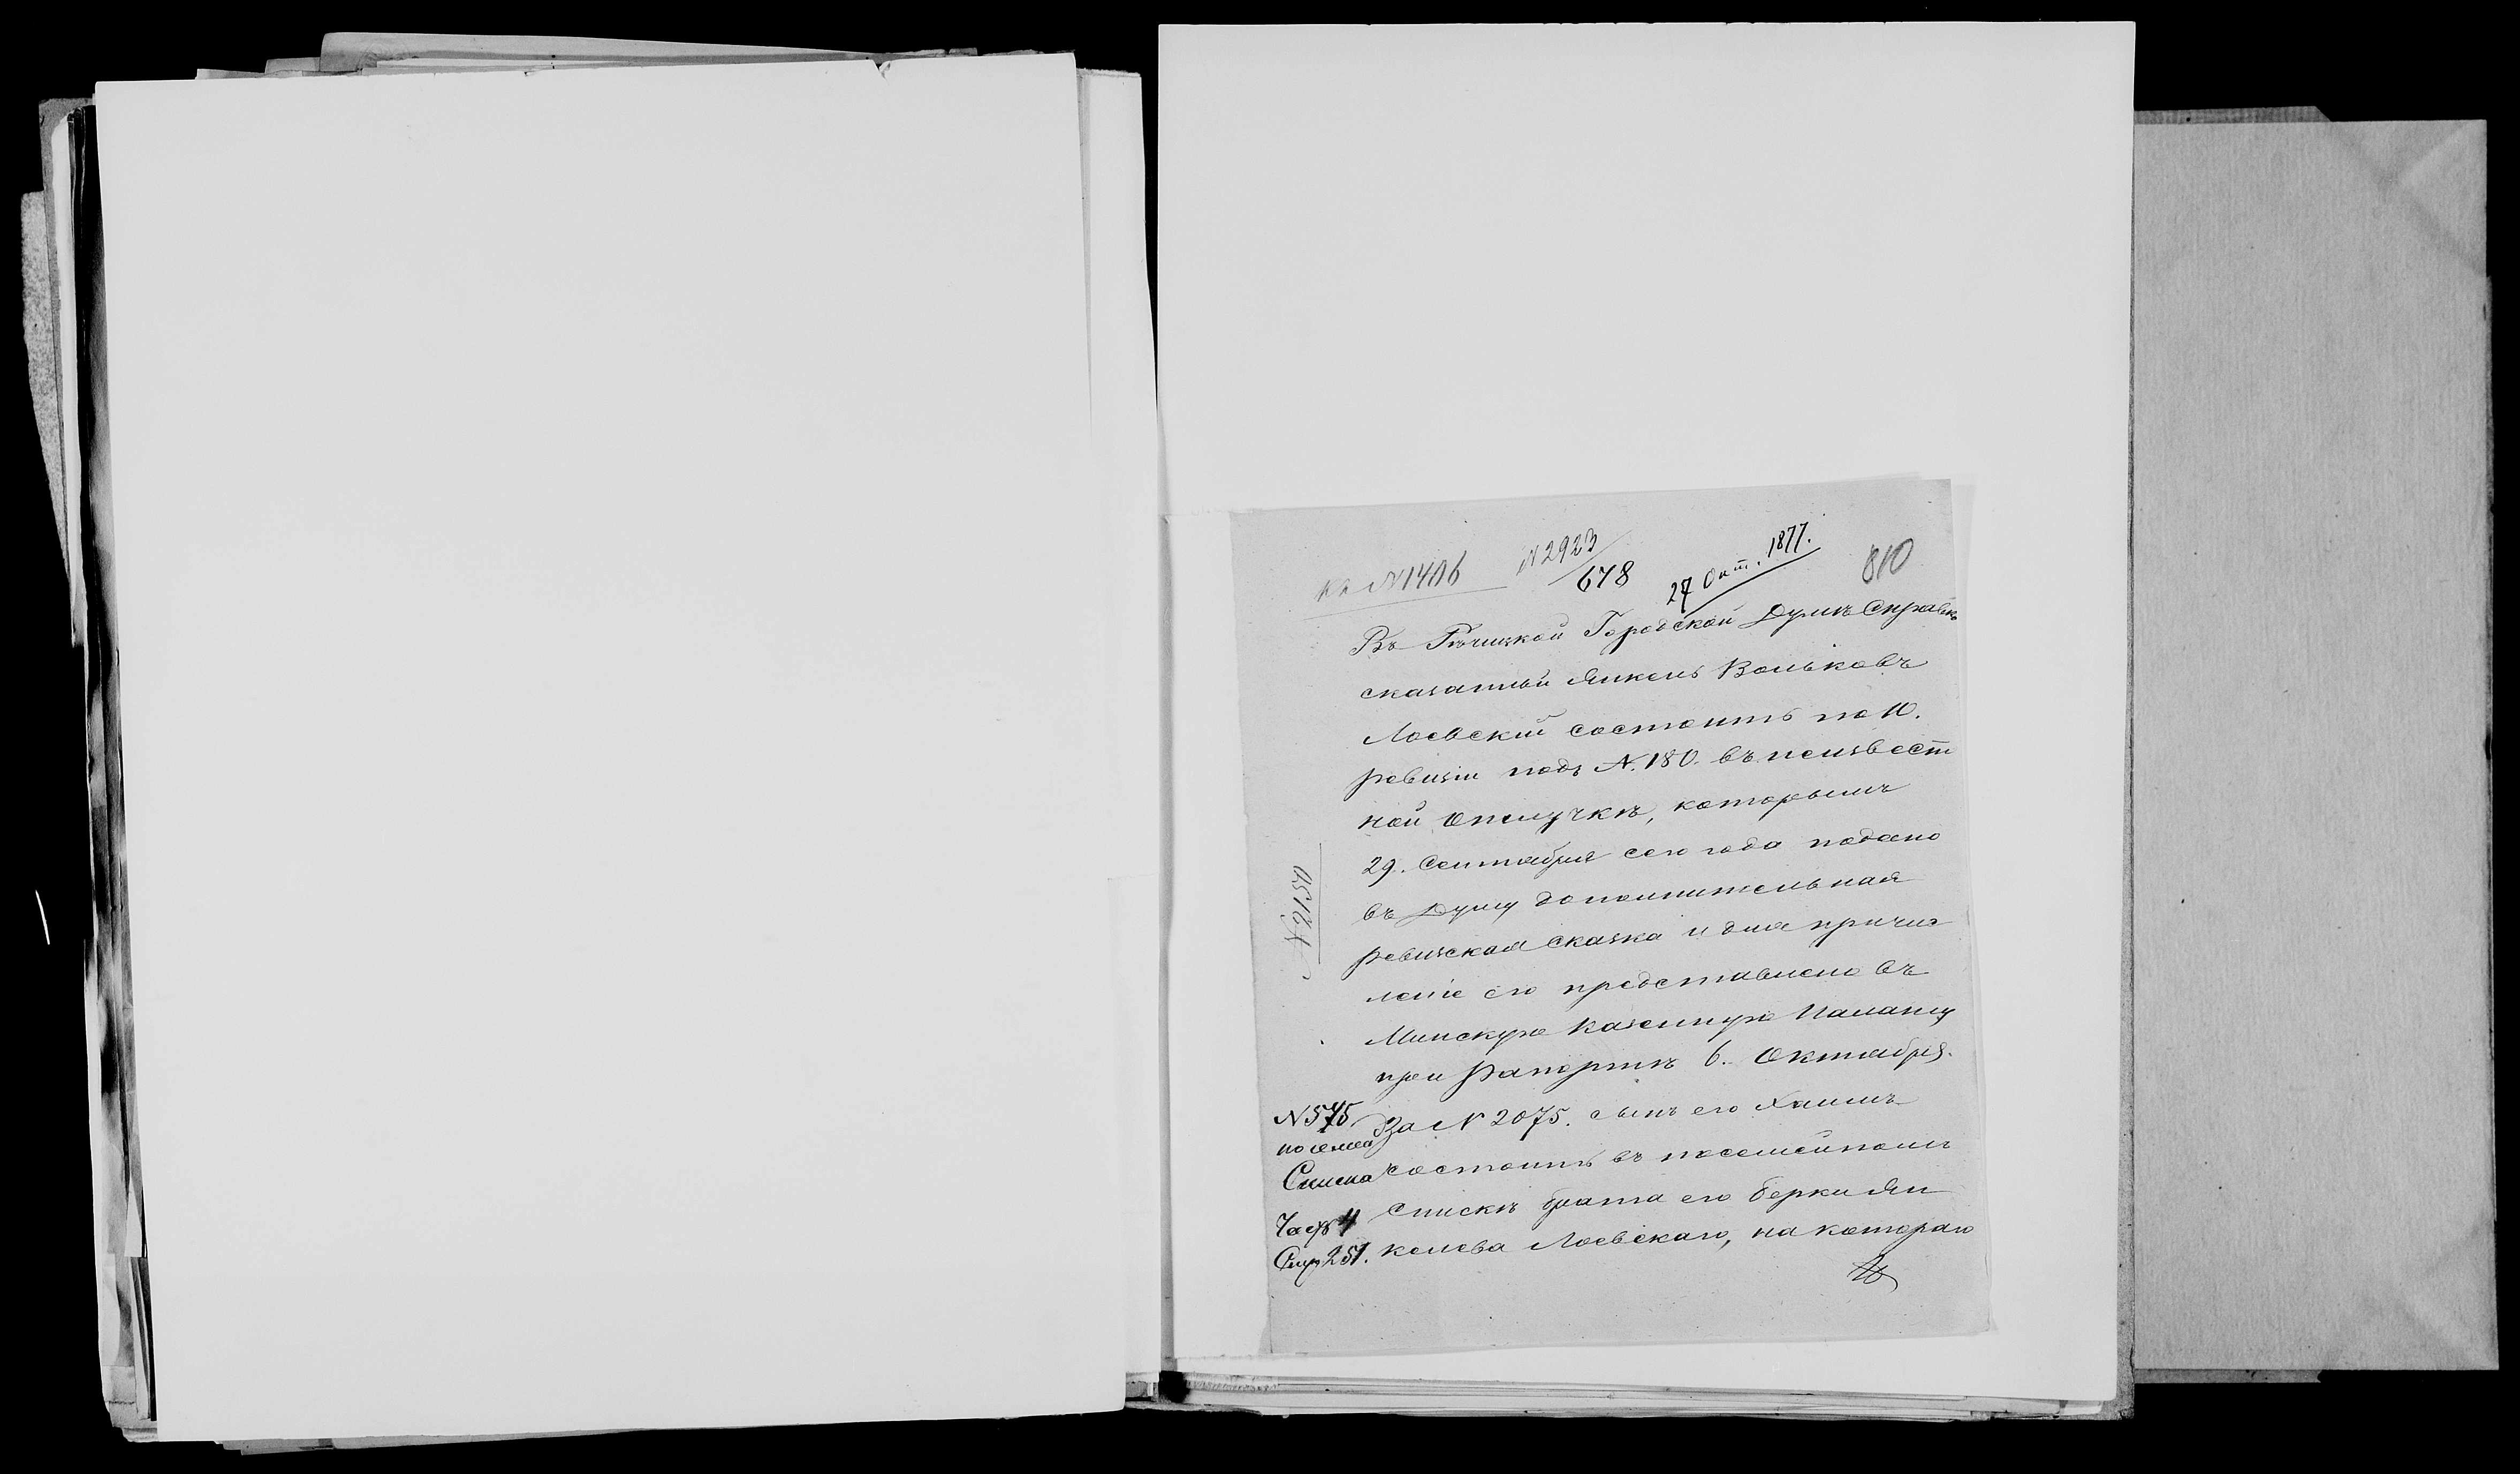 къ N 1406
N 2923/678
27 Окт. 1877.
810
Въ Рѣчицкой Городской Думѣ Справка
сказанный Янкель Вольковъ
Лоевский состоитъ по 10.
ревизіи подъ N. 180. въ неизвест
ной отлучкѣ, которымъ
29. Сентября сего года подано
въ Думу дополнительная
ревизская сказка и для причис
ленія его представлено въ
Минскую Казенную Палату
при рапортѣ 6. Октября.
За N 2075. сынъ его Хаимъ
состоитъ въ посемейномъ
спискѣ брата его Берки Ян
келева Лоевскаго, на котораго
N 2150
N 545
по семей
Списка
Часть 4
Стр 251.